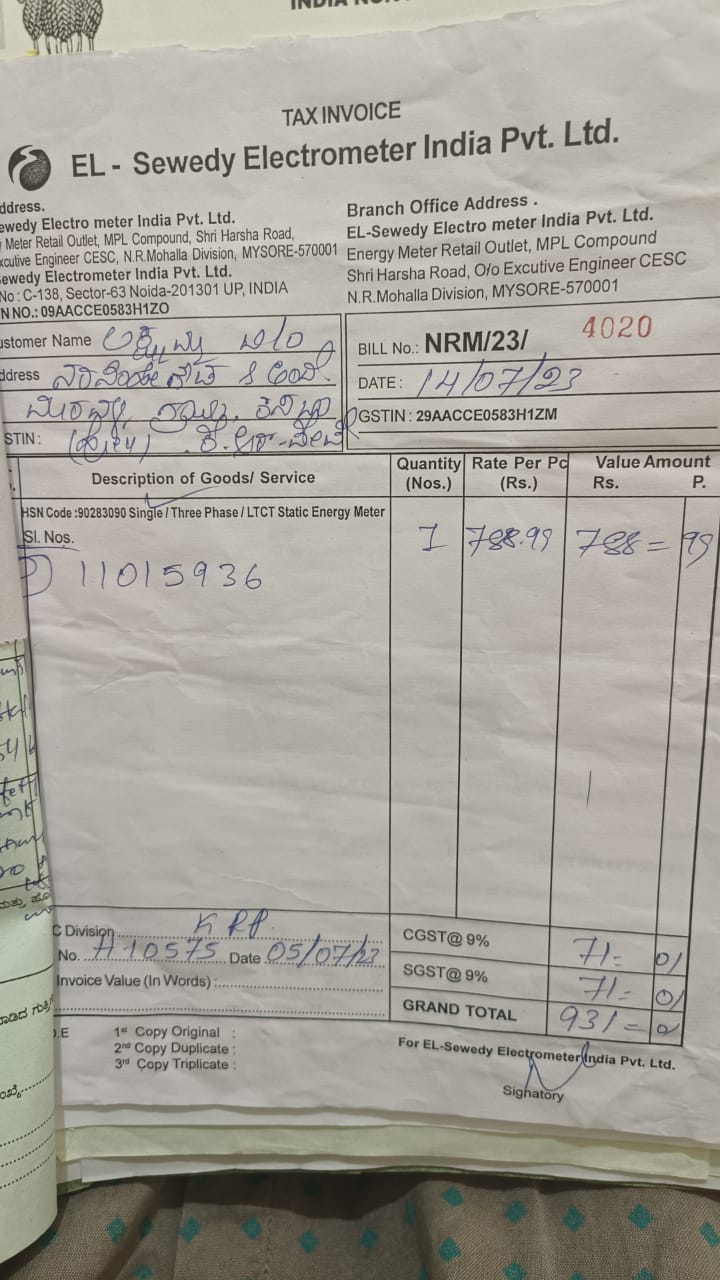 INDIA NO
TAX INVOICE
EL - Sewedy Electrometer India Pvt. Ltd.
ddress.
ewedy Electro meter India Pvt. Ltd.
y Meter Retail Outlet, MPL Compound, Shri Harsha Road,
xcutive Engineer CESC, N.R.Mohalla Division, MYSORE-570001
ewedy Electrometer India Pvt. Ltd.
No : C-138, Sector-63 Noida-201301 UP, INDIA
N NO.: 09AACCE0583H1ZO
Branch Office Address .
EL-Sewedy Electro meter India Pvt. Ltd.
Energy Meter Retail Outlet, MPL Compound
Shri Harsha Road, O/o Excutive Engineer CESC
N.R.Mohalla Division, MYSORE-570001
ustomer Name
ddress
STIN :
BILL No.: NRM/23/ 4020
DATE : 14/07/23
GSTIN : 29AACCE0583H1ZM
Description of Goods/ Service Quantity (Nos.) Rate Per Pc (Rs.) Value Amount Rs. P.
HSN Code :90283090 Single / Three Phase / LTCT Static Energy Meter
Sl. Nos. 1 788.99 788= 99
1) 11015936
C Division KRP
No. A10575 Date 05/07/23
Invoice Value (In Words) :
CGST@ 9% 71= 01
SGST@ 9% 71= 01
GRAND TOTAL 931=
1st Copy Original :
2nd Copy Duplicate :
3rd Copy Triplicate :
For EL-Sewedy Electrometer India Pvt. Ltd.
Sighatory